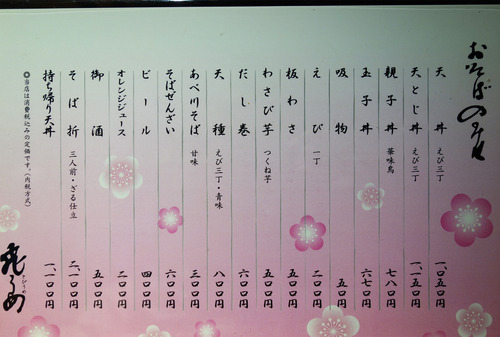 おそばの子せ
天丼 えび三丁 一、〇五〇円
天とじ丼 えび三丁 一、一五〇円
親子丼 華味鳥 七八〇円
玉子丼 六七〇円
吸物 五〇円
えび 一丁 二〇〇円
板わさ 五〇〇円
わさび芋 つくね芋 五〇〇円
だし巻 六〇〇円
天種 えび三丁・青味 八〇〇円
あべ川そば 甘味 三〇〇円
そばぜんざい 六〇〇円
ビール 四〇〇円
オレンジジュース 二〇〇円
御酒 五〇〇円
そば折 三人前・ざる仕立 二、一〇〇円
持ち帰り天丼 一、一〇〇円
◎当店は消費税込みの定価です。(内税方式)